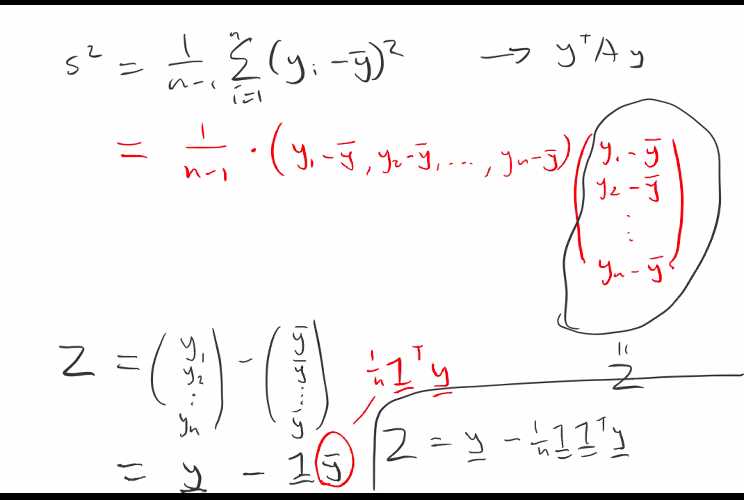 s² = 1/(n-1) Σ_{i=1}^{n} (y_i - ȳ)² → y^T A y
= 1/(n-1) · (y_1 - ȳ, y_2 - ȳ, ..., y_n - ȳ) (y_1 - ȳ
y_2 - ȳ
⋮
y_n - ȳ)
"
Z
Z = (y_1 y_2 ⋮ y_n) - (ȳ ȳ ... ȳ)
1/n 1^T y
= y - 1 ȳ
Z = y - 1/n 1 1^T y